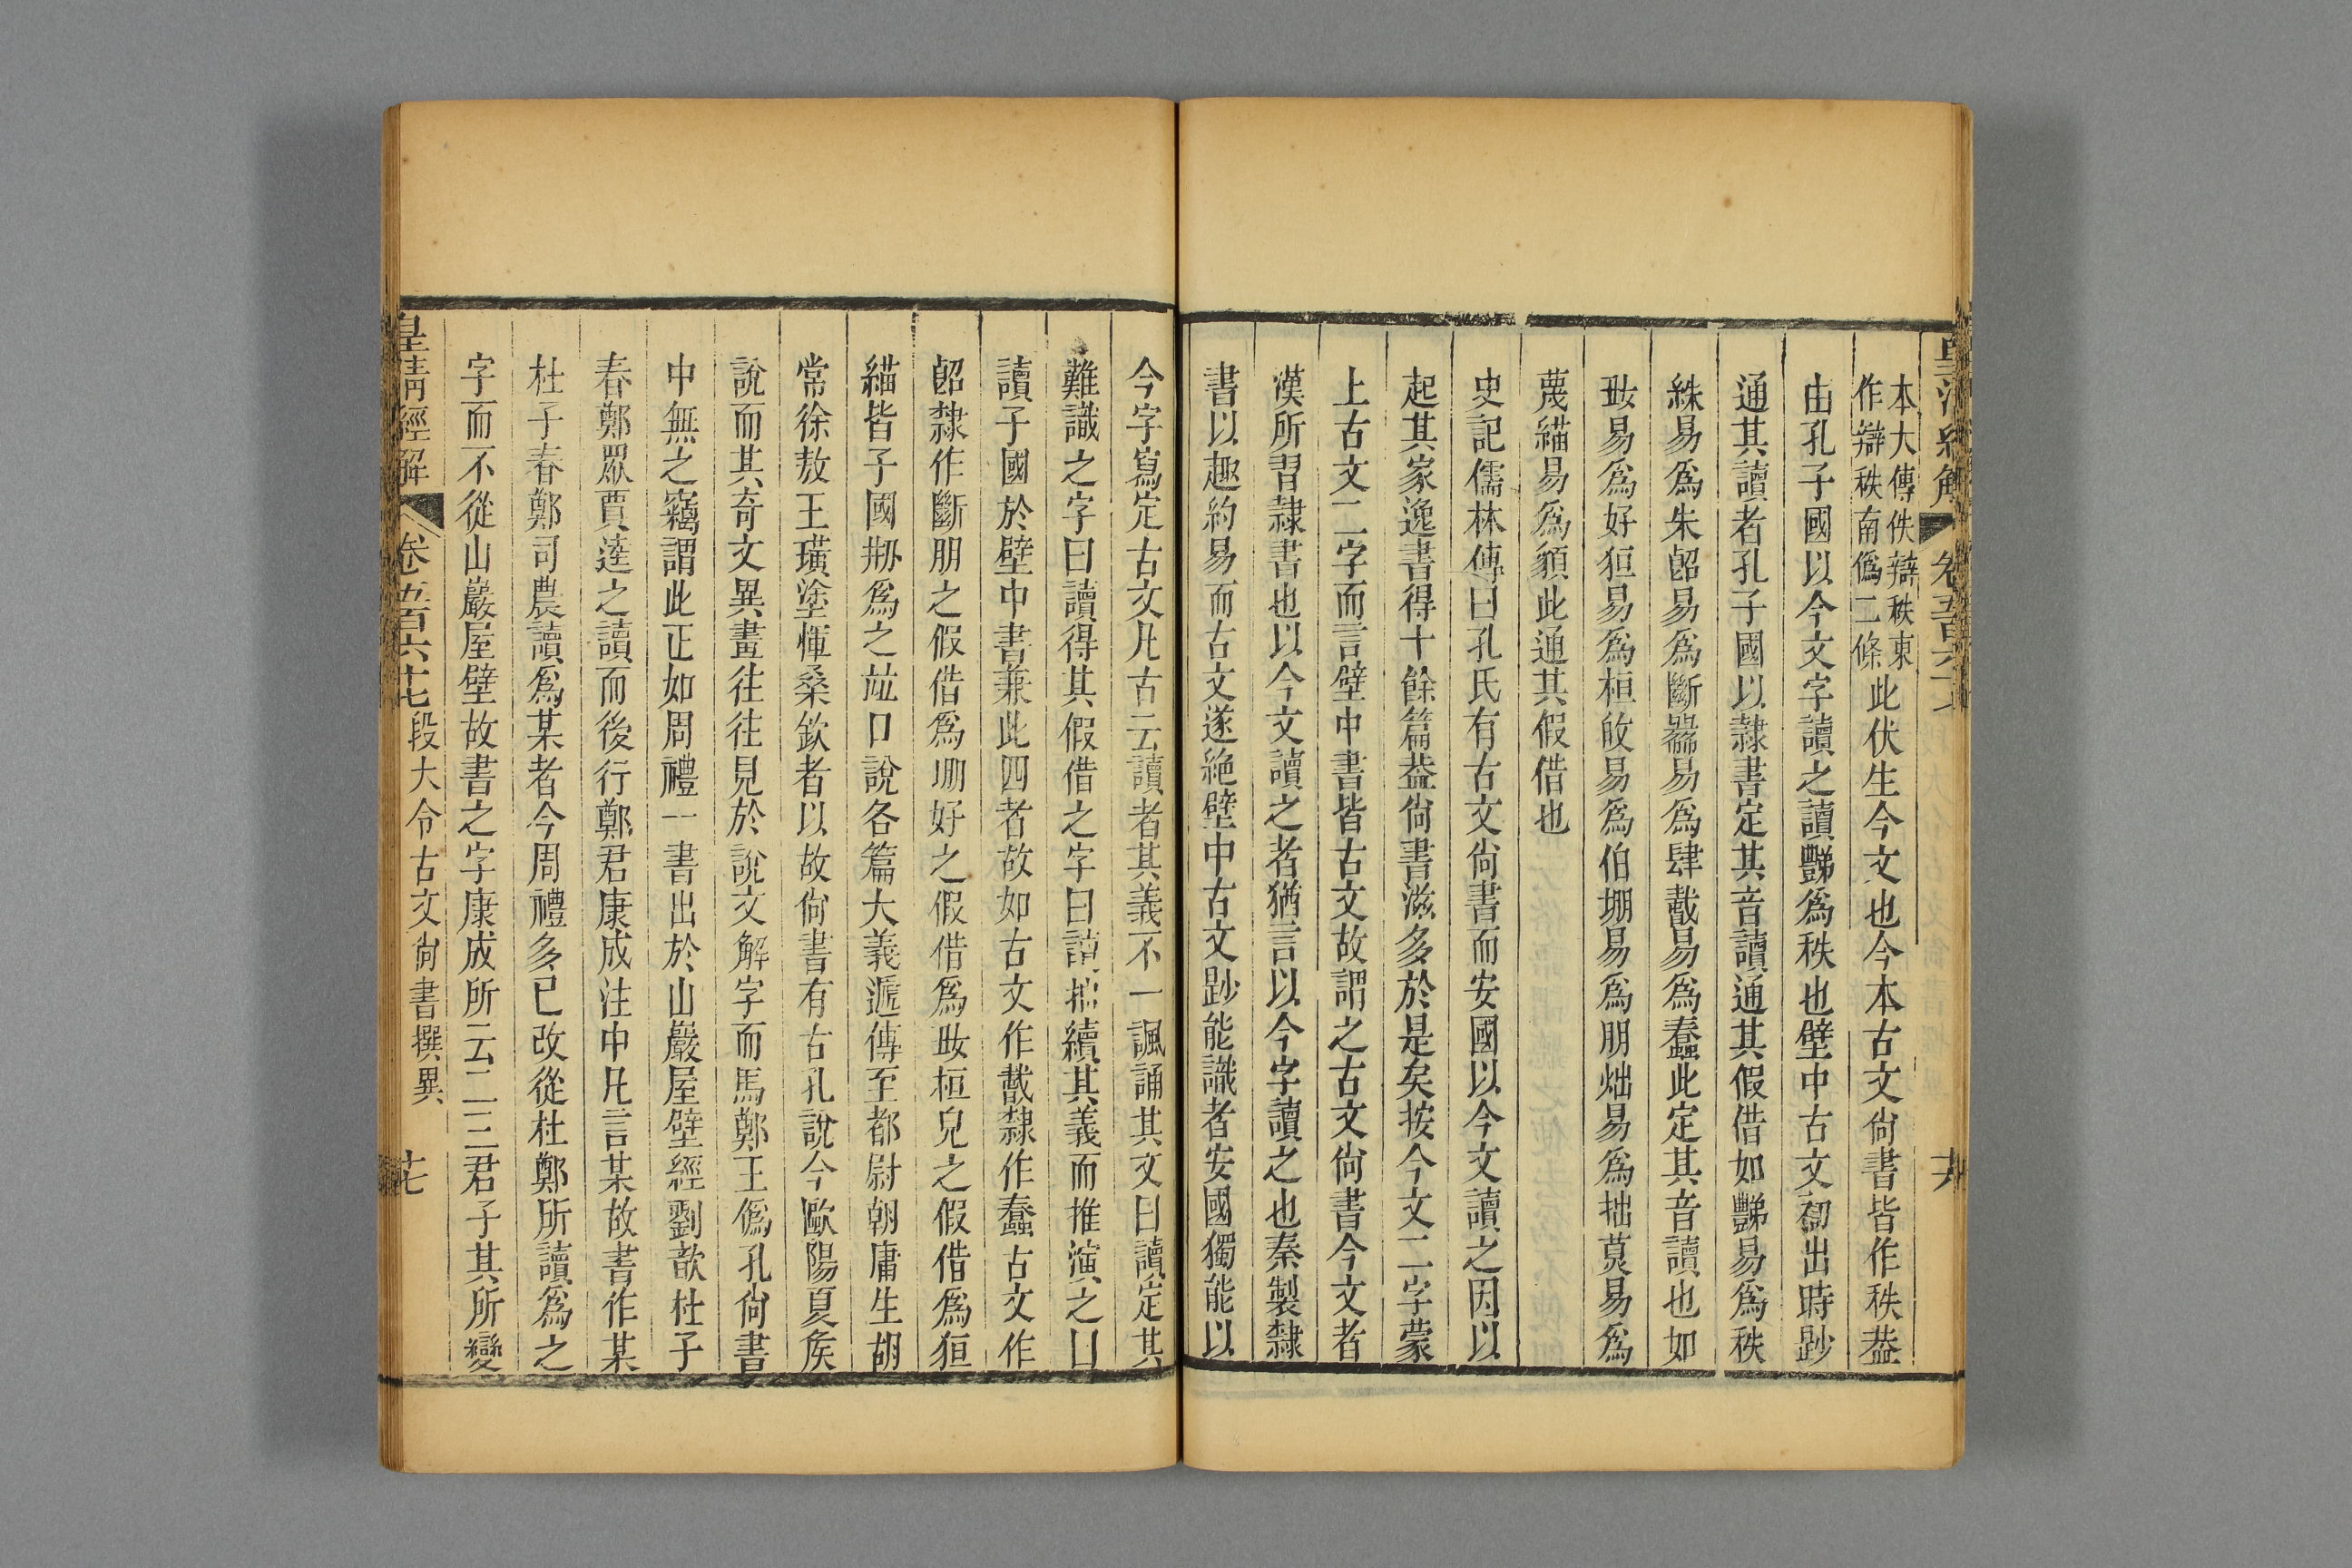 本大傳佚辯秩東
作辯秩南僞二條
此伏生今文也今本古文尙書皆作秩葢
由孔子國以今文字讀之讀豑爲秩也壁中古文初出時尟
通其讀者孔子國以隷書定其音讀通其假借如豑易爲秩
絑易爲朱㔾易爲斷㗬易爲肆䳒易爲蠢此定其音讀也如
㚼易爲好狟易爲桓敀易爲伯堋易爲朋炪易爲拙莫易爲
蔑緢易爲䫉此通其假借也
史記儒林傳曰孔氏有古文尙書而安國以今文讀之因以
起其家逸書得十餘篇葢尙書滋多於是矣按今文二字蒙
上古文二字而言壁中書皆古文故謂之古文尙書今文者
漢所習隷書也以今文讀之者猶言以今字讀之也秦製隷
書以趣約易而古文遂絶壁中古文尟能識者安國獨能以
今字寫定古文凡古云讀者其義不一諷誦其文曰讀定其
難識之字曰讀得其假借之字曰讀抽續其義而推演之曰
讀子國於壁中書兼此四者故如古文作𢧵隷作蠢古文作
隷作斷朋之假借爲堋好之假借爲㚼桓皃之假借爲狟
緢皆子國刱爲之竝口說各篇大義遞傳至都尉朝庸生胡
常徐敖王璜塗惲桑欽者以故尙書有古孔說今歐陽夏矦
說而其奇文異畫往往見於說文解字而馬鄭王僞孔尙書
中無之竊謂此正如周禮一書出於山巖屋壁經劉歆杜子
春鄭眾賈逵之讀而後行鄭君康成注中凡言某故書作某
杜子春鄭司農讀爲某者今周禮多已改從杜鄭所讀爲之
字而不從山巖屋壁故書之字康成所云二三君子其所變
皇清經解 卷五百六十七 段大令古文尙書撰異 十七